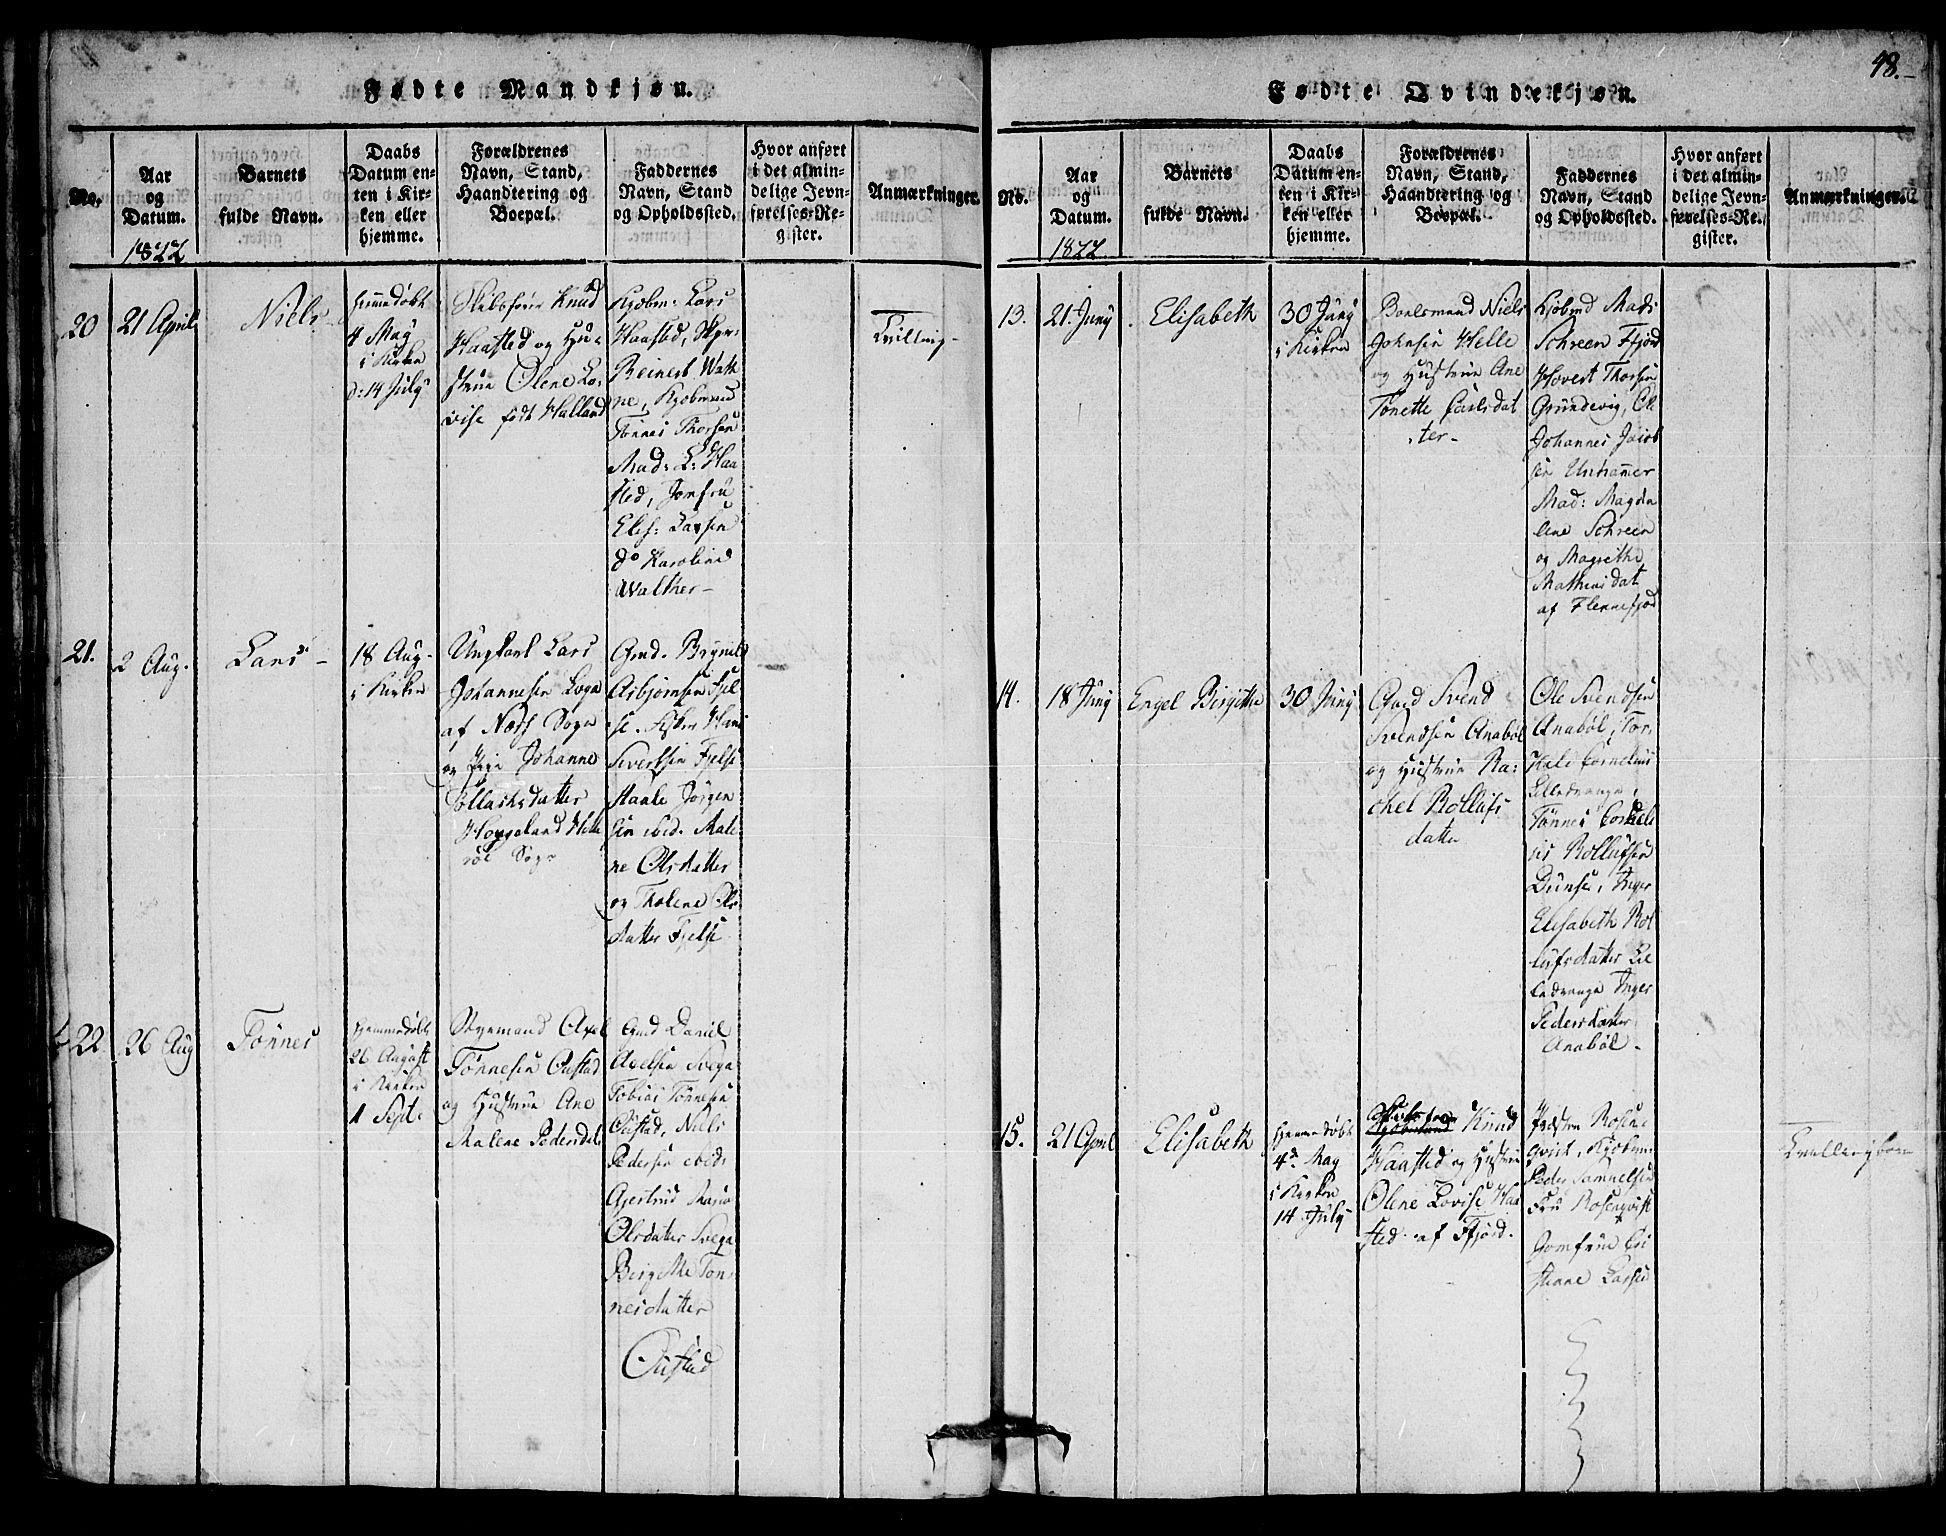 Fødte Mandkjøn.
No.
Aar
og
Datum.
1822
Barnets
fulde Navn.
Daabs
Datum en-
ten i Kir-
ken eller
hjemme.
Forældrenes
Navn, Stand,
Haandtering og
Boepæl.
Faddernes
Navn, Stand
og Opholdssted.
Hvor anført
i det almin-
delige Jevn-
førelses-Re-
gister.
Anmærkninger.
20
21 April
Niels
hjemmedøbt
4 May
i Kirken
d: 14 July
Skibsfører Knud
Haasted og Hu-
strue Olene Lo-
vise født Halland
Kjøbm: Lars
Haasted, Skpr:
Reinert Wath
ne, Kjøbmand
Tønnes Thorsen
Mad: L: Haa
sted, Jomfru
Elis: Larsen
do Karoline
Walther
Tvilling
21.
2 Aug.
Lars
18 Aug
i Kirken
Ungkarl Lars
Johannesen Loga
af Næss Sogn
og Pige Johanne
Tollachsdatter
Hougeland Hitte
røe Sogn
Gmd. Brynild
Asbjørnsen Fjel
se. Asker Hans
Sivertsen Fjelse
Staale Jörgen
sen ibid. Male
ne Olsdatter
og Tholene Ols
datter Fjelse
22
26 Aug
Tønnes
hjemmedøbt
26 August
i Kirken
1 Sept.
Styrmand Axel
Tønnesen Oustad
og Hustrue Ane
Malene Pedersdat
Gmd Daniel
Axelsen Svega
Tobias Tønnesen
Oustad, Niels
Pedersen ibid:
Gjertrud Maria
Olsdatter Svega
Birgitthe Ton
nesdatter
Oustad
48.
Fødte Qvindekjøn.
No.
Aar
og
Datum.
1822
Barnets
fulde Navn.
Daabs
Datum en-
ten i Kir-
ken eller
hjemme.
Forældrenes
Navn, Stand,
Haandtering og
Boepæl.
Faddernes
Navn, Stand
og Opholdssted.
Hvor anført
i det almin-
delige Jevn-
førelses-Re-
gister.
Anmærkninger.
13.
21. Juny
Elisabeth
30 Juny
i Kirken
Boelsmand Niels
Johnsen Helle
og Hustrue Ane
Tonette Carlsdat
ter
Kjøbmd Mads
Schreen Ffjord
Hovert Thorsen
Grundevig, Ole
Johannes Jacob
sen
Mad: Magda
lene Schreen
og Magrethe
Mathiasdat
af Flekkefjord
14.
18 Juny
Engel Birgitte
30 Juny
Gmd Svend
Svendsen Anabøl
og Hustrue Ra-
chel Rollufs
datter
Ole Svendsen
Anabøl, Tor-
kild Cornelius
Tønnes Corneli
us Rollufsen
Dunse, Inger
Elisabeth Rol
lufsdatter
Inger
Pedersdatter
Anabøl
15.
21 April
Elisabeth
hjemmedøbt
4de May
i Kirken
14 July
Skibsfører Knud
Haasted og Hustrue
Olene Lovise Haa
sted af Ffjord.
Præsten Rosen-
qvist, Kjøbm:
Peder Samuelsen
Fru Rosenqvist
Jomfrue Cri
stiane Larsen
Tvillingbarn